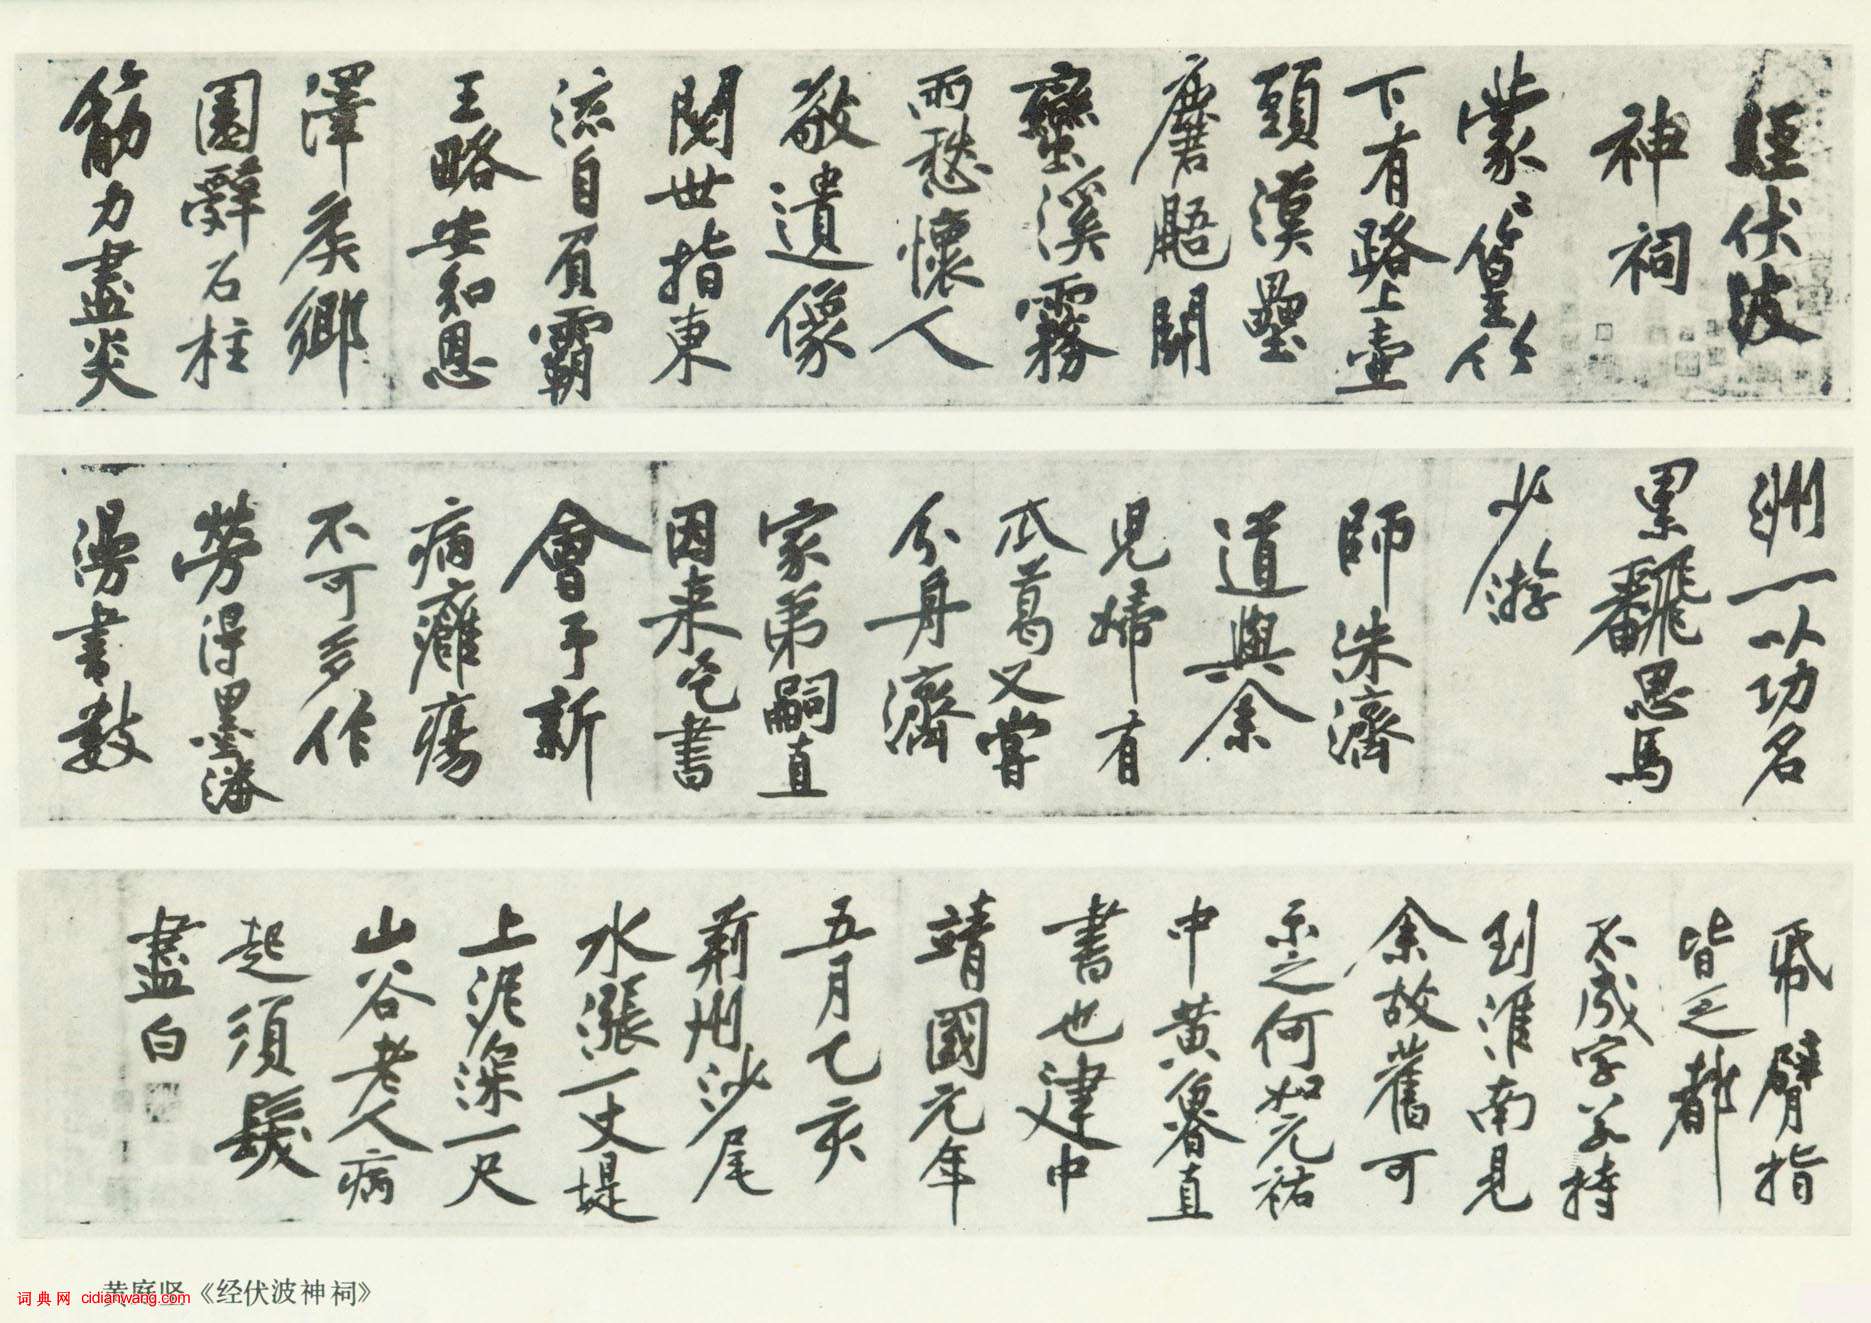 經伏波
神祠
蒙〻篁竹
下有路上壺
頭漢壘
麏鼯鬪
蠻溪霧
雨愁懷人
敬遺像
閱世指東
流自負霸
王略安知恩
澤矦鄉
園辭石柱
筋力盡炎
洲一以功名
累翻思馬
少游
師洙濟
道與余
兒婦有
瓜葛又嘗
分舟濟
家弟嗣直
因来乞書
會予新
病癰瘍
不可多作
勞得墨瀋
漫書數
紙臂指
皆乏都
不成字若持
到淮南見
余故舊可
示之何如元祐
中黄魯直
書也建中
靖國元年
五月乙亥
荊州沙尾
水漲一丈堤
上泥深一尺
山谷老人病
起須髮
盡白
黄庭坚《经伏波神祠》
词典网 cidianwang.com